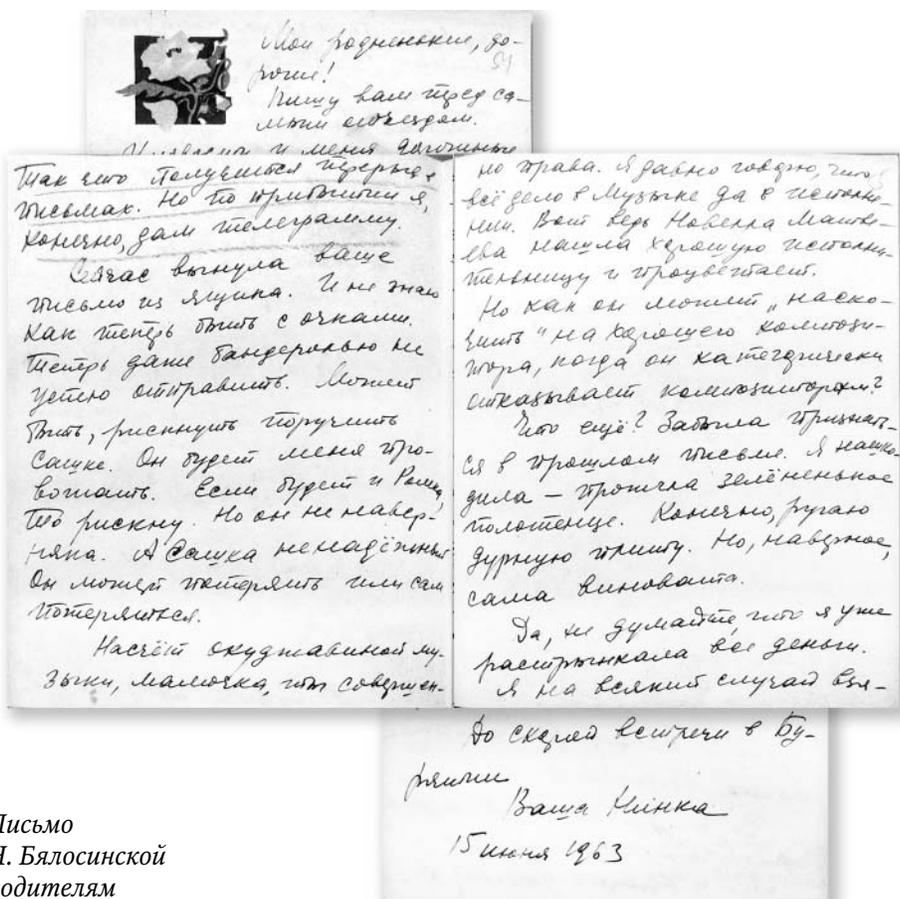 Мои родненькие, до-
рогие!
Пишу вам перед са-
мым отъездом.
и меня
Так что получится перерыв в
письмах. Но по прибытии я,
конечно, дам телеграмму.
Сейчас вынула ваше
письмо из ящика. И не знаю
как теперь быть с очками.
Теперь даже бандеролью не
успею отправить. Может
быть, рискнуть поручить
Сашке. Он будет меня про-
вожать. Если будет и Ромка,
то рискну. Но он не навер-
няка. А Сашка ненадёжный
Он может потерять или сам
потеряться.
Насчёт окуджавиной му-
зыки, мамочка, ты совершен-
но права. Я давно говорю, что
всё дело в музыке да в исполне-
нии. Вот ведь Новелла Матве-
ева нашла хорошую исполни-
тельницу и процветает.
Но как он может „наско-
чить“ на хорошего компози-
тора, когда он категорически
отказывает композиторам?
Что ещё? Забыла признать-
ся в прошлом письме. Я нашко-
дила – прожгла зелёненькое
полотенце. Конечно, ругаю
дурную плиту. Но, наверное,
сама виновата.
Да, не думайте, что я уже
растрынкала все деньги.
Я на всякий случай взя-
До скорой встречи в Бу-
рятии
Ваша Нинка
15 июня 1963
Письмо
Н. Бялосинской
родителям